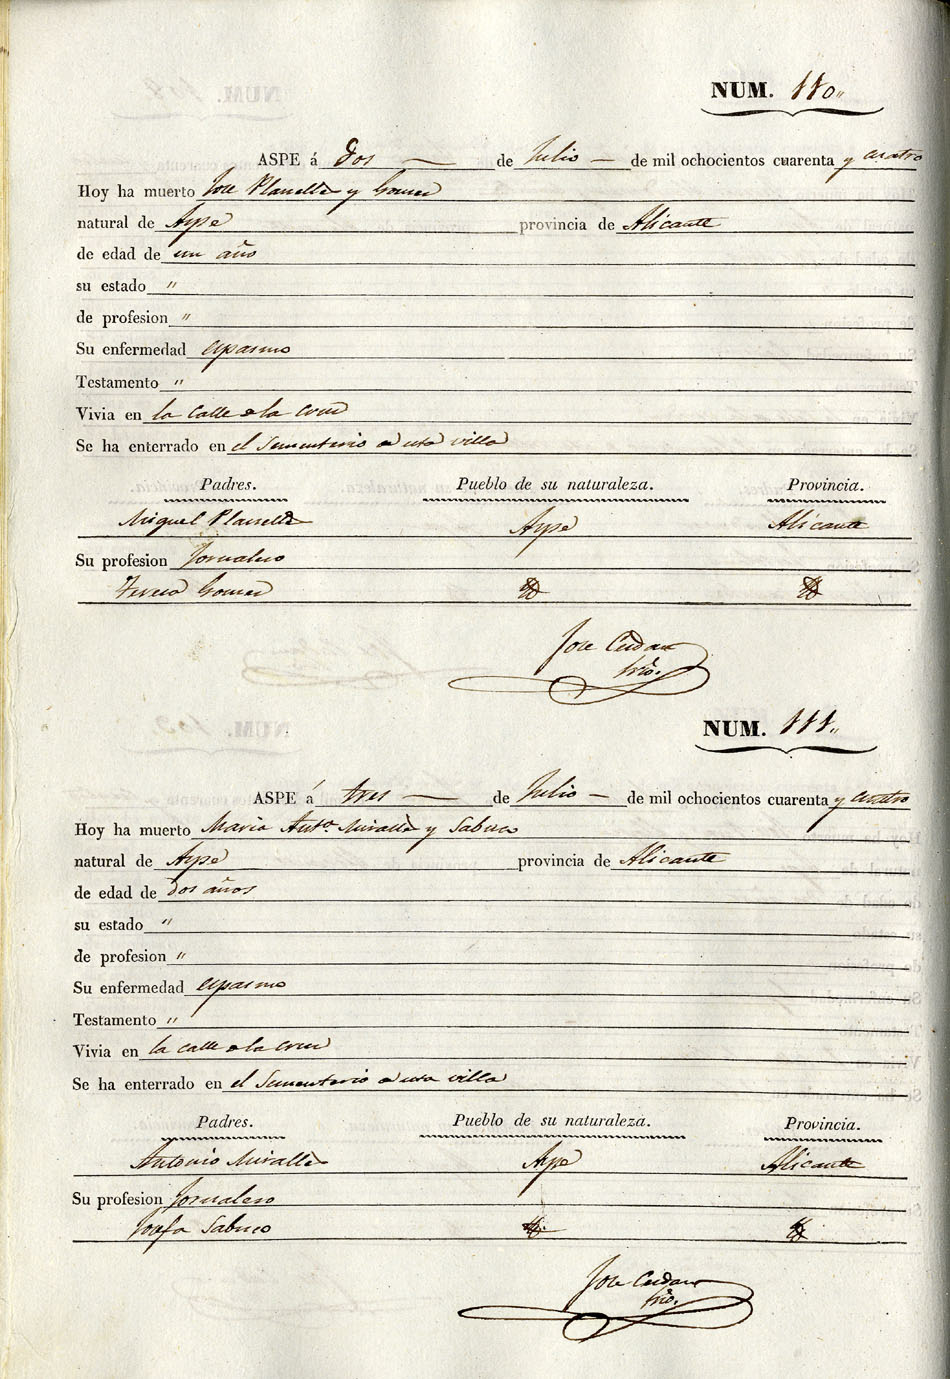 NUM. 110.,
ASPE á Dos — de Julio — de mil ochocientos cuarenta y cuatro
Hoy ha muerto Jose Planelles y Gomez
natural de Aspe provincia de Alicante
de edad de un año
su estado "
de profesion "
Su enfermedad espasmo
Testamento "
Vivia en la calle de la cruz
Se ha enterrado en el Sementerio de esta villa
Padres. Pueblo de su naturaleza. Provincia.
Miguel Planelles Aspe Alicante
Su profesion Jornalero
Teresa Gomez
Jose Cerdan
NUM. 111.,
ASPE á tres — de Julio — de mil ochocientos cuarenta y cuatro
Hoy ha muerto Maria Antª. Miralles y Sabuco
natural de Aspe provincia de Alicante
de edad de dos años
su estado "
de profesion "
Su enfermedad espasmo
Testamento "
Vivia en la calle de la cruz
Se ha enterrado en el Sementerio de esta villa
Padres. Pueblo de su naturaleza. Provincia.
Antonio Miralles Aspe Alicante
Su profesion Jornalero
Josefa Sabuco
Jose Cerdan